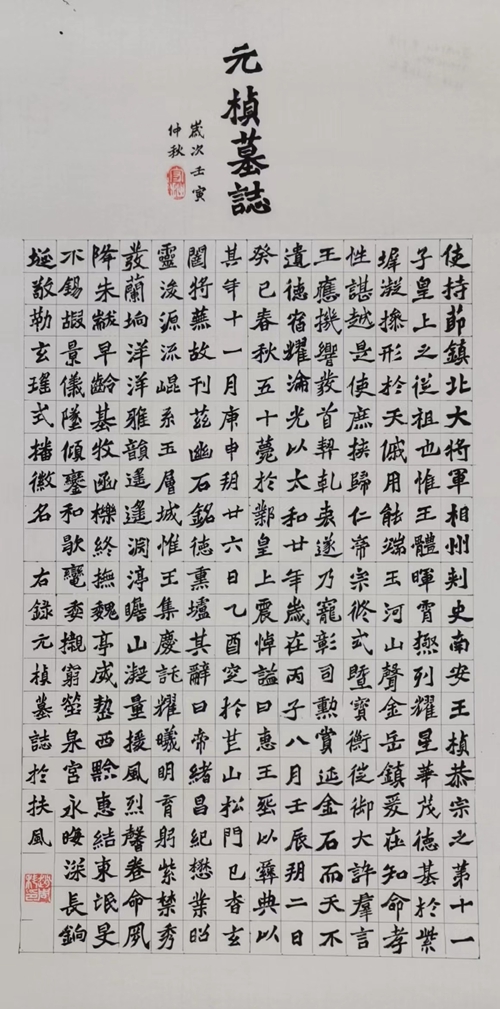 元楨墓誌
歲次壬寅
仲秋
使持節鎮北大將軍相州刺史南安王楨恭宗之第十一
子皇上之從祖也惟王體暉霄極列耀星華茂德基於紫
墀凝操形於天儀用能端玉河山聲金岳鎮爰在知命孝
性諶越是使庶族歸仁帝宗攸式暨寶衡從御大許羣言
王應機響發首契乾衷遂乃寵彰司勳賞延金石而天不
遺德宿耀淪光以太和廿年歲在丙子八月壬辰朔二日
癸巳春秋五十薨於鄴皇上震悼諡曰惠王葬以彝典以
其年十一月庚申朔廿六日乙酉窆於芒山松門已杳玄
闥將蕪故刊茲幽石銘德熏壚其辭曰帝緒昌紀懋業昭
靈浚源流崐系玉層城惟王集慶託耀曦明育躬紫禁秀
發蘭坰洋洋雅韻遙遙淵渟瞻山凝量援風烈馨卷命夙
降朱黻早齡基牧函櫟終撫魏亭威懋西黔惠結東氓旻
不錫嘏景儀墜傾鑾和歇轡委櫬窮塋泉宮永晦深長
埏敬勒玄瑤式播徽名 右錄元楨墓誌於扶風